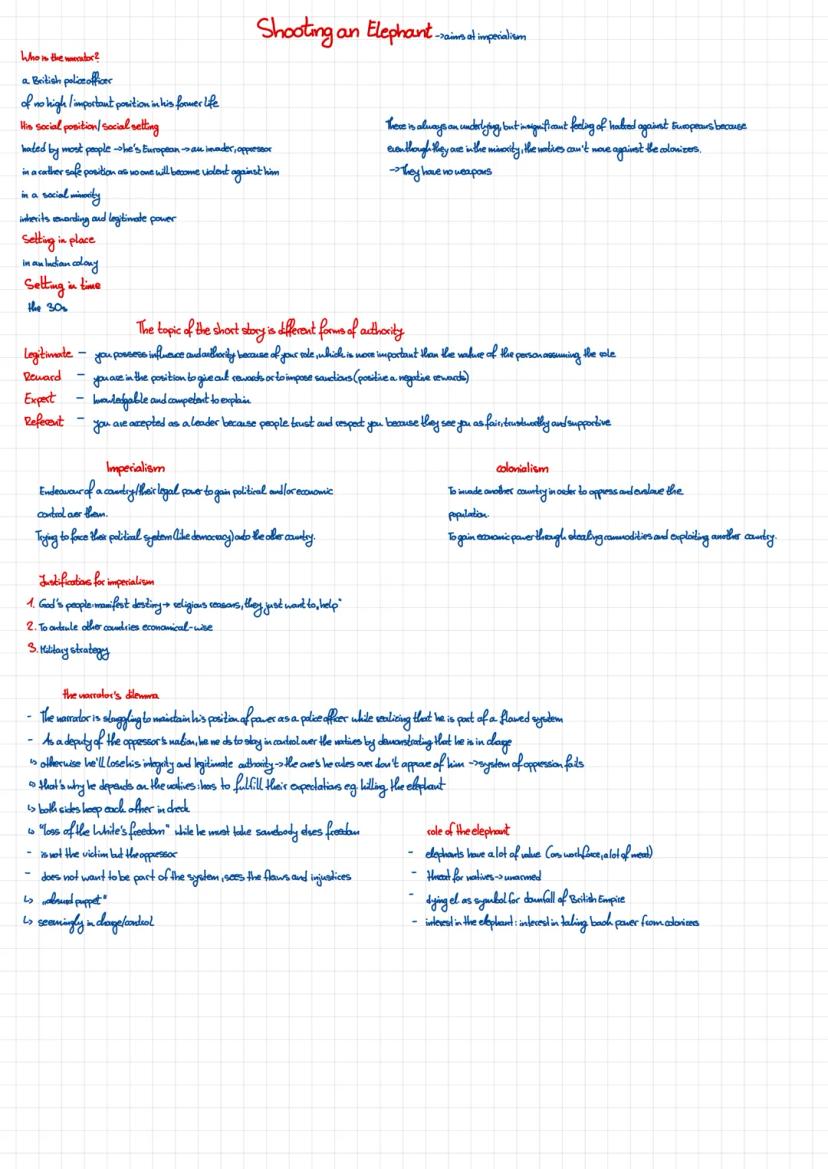 Shooting an Elephant → aims at imperialism
Who is the narrator?
a British police officer
of no high / important position in his former life
His social position / social setting
hated by most people → he's European → an invader, oppressor
in a rather safe position as no one will become violent against him
in a social minority
inherits rewarding and legitimate power
There is always an underlying, but insignificant feeling of hatred against Europeans because
even though they are in the minority, the natives can't move against the colonizers.
→ They have no weapons
Setting in place
in an Indian colony
Setting in time
the 30s
The topic of the short story is different forms of authority
Legitimate – you possess influence and authority because of your role, which is more important than the nature of the person assuming the role
Reward – you are in the position to give out rewards or to impose sanctions (positive a negative rewards)
Expert – knowledgable and competent to explain
Referent – you are accepted as a leader because people trust and respect you because they see you as fair, trustworthy and supportive
Imperialism
Endeavour of a country / their legal power to gain political and/or economic
control over them.
Trying to force their political system (like democracy) onto the other country.
colonialism
To invade another country in order to oppress and enslave the
population.
To gain economic power through stealing commodities and exploiting another country.
Justifications for imperialism
1. God's people: manifest destiny → religious reasons, they just want to „help"
2. To outrule other countries economical-wise
3. Military strategy
the narrator's dilemma
- The narrator is struggling to maintain his position of power as a police officer while realizing that he is part of a flawed system
- As a deputy of the oppressor's nation, he ne ds to stay in control over the natives by demonstrating that he is in charge
↳ otherwise he'll lose his integrity and legitimate authority → the one's he rules over don't approve of him → system of oppression fails
↳ that's why he depends on the natives: has to fulfill their expectations eg. killing the elephant
↳ both sides keep each other in check
↳ "loss of the White's freedom" while he must take somebody elses freedom
- is not the victim but the oppressor
- does not want to be part of the system, sees the flaws and injustices
↳ „absurd puppet"
↳ seemingly in charge/control
role of the elephant
- elephants have a lot of value (as workforce, a lot of meat)
- threat for natives → unarmed
- dying el. as symbol for downfall of British Empire
- interest in the elephant: interest in taking back power from colonizers